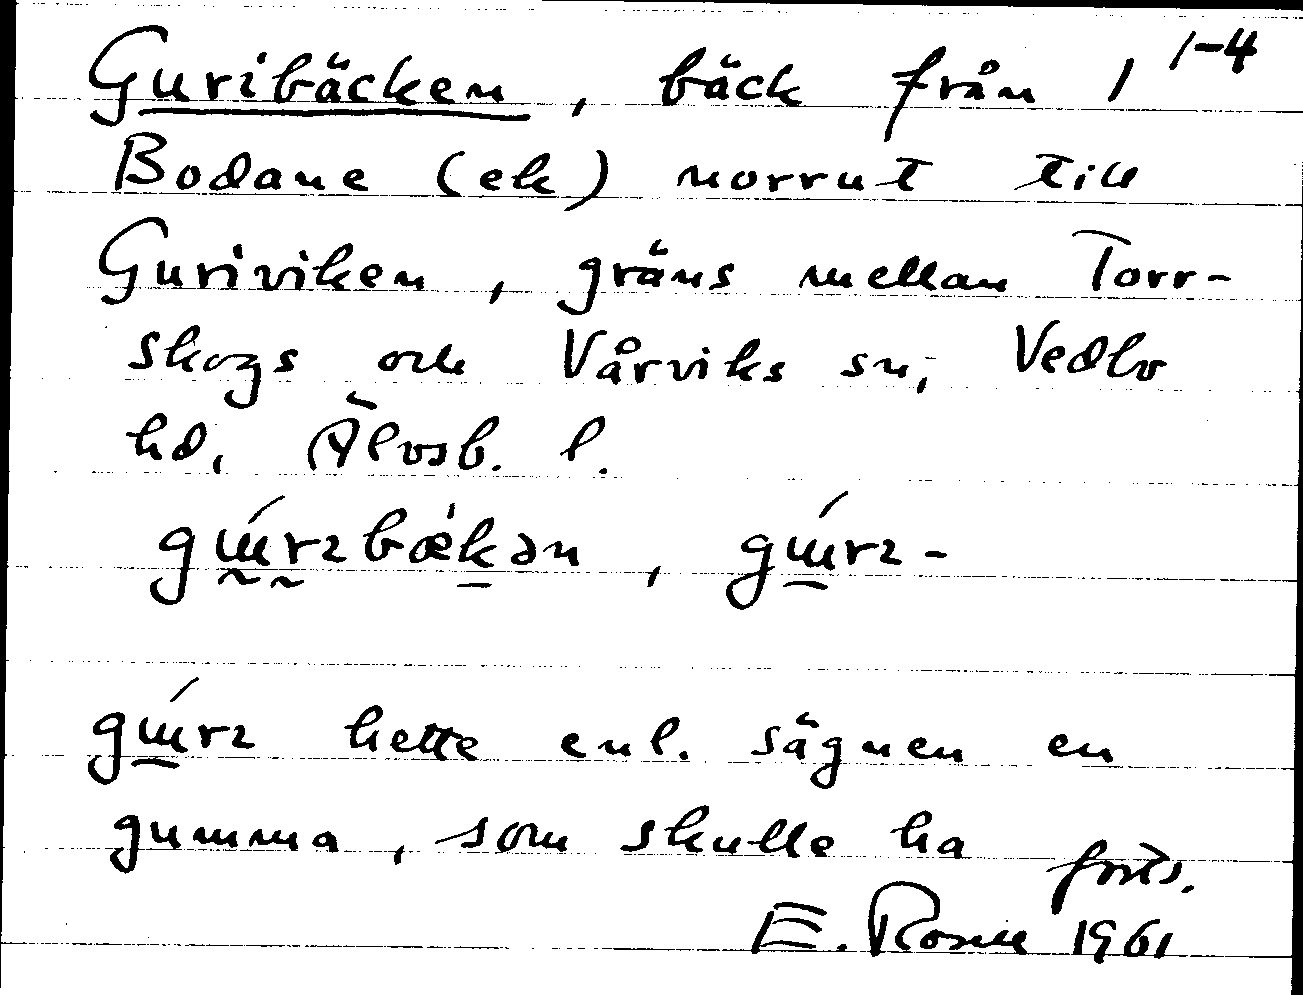 Guribäcken, bäck från 1 1-4
Bodane (ek) norrut till
Guriviken, gräns mellan Torr-
skogs och Vårviks sn, Vedbo
hd, Älvsb. l.
gɯ́rɪbækən, gɯ́rɪ-
gɯ́rɪ hette enl. sägnen en
gumma, som skulle ha
forts.
E. Rosell 1961